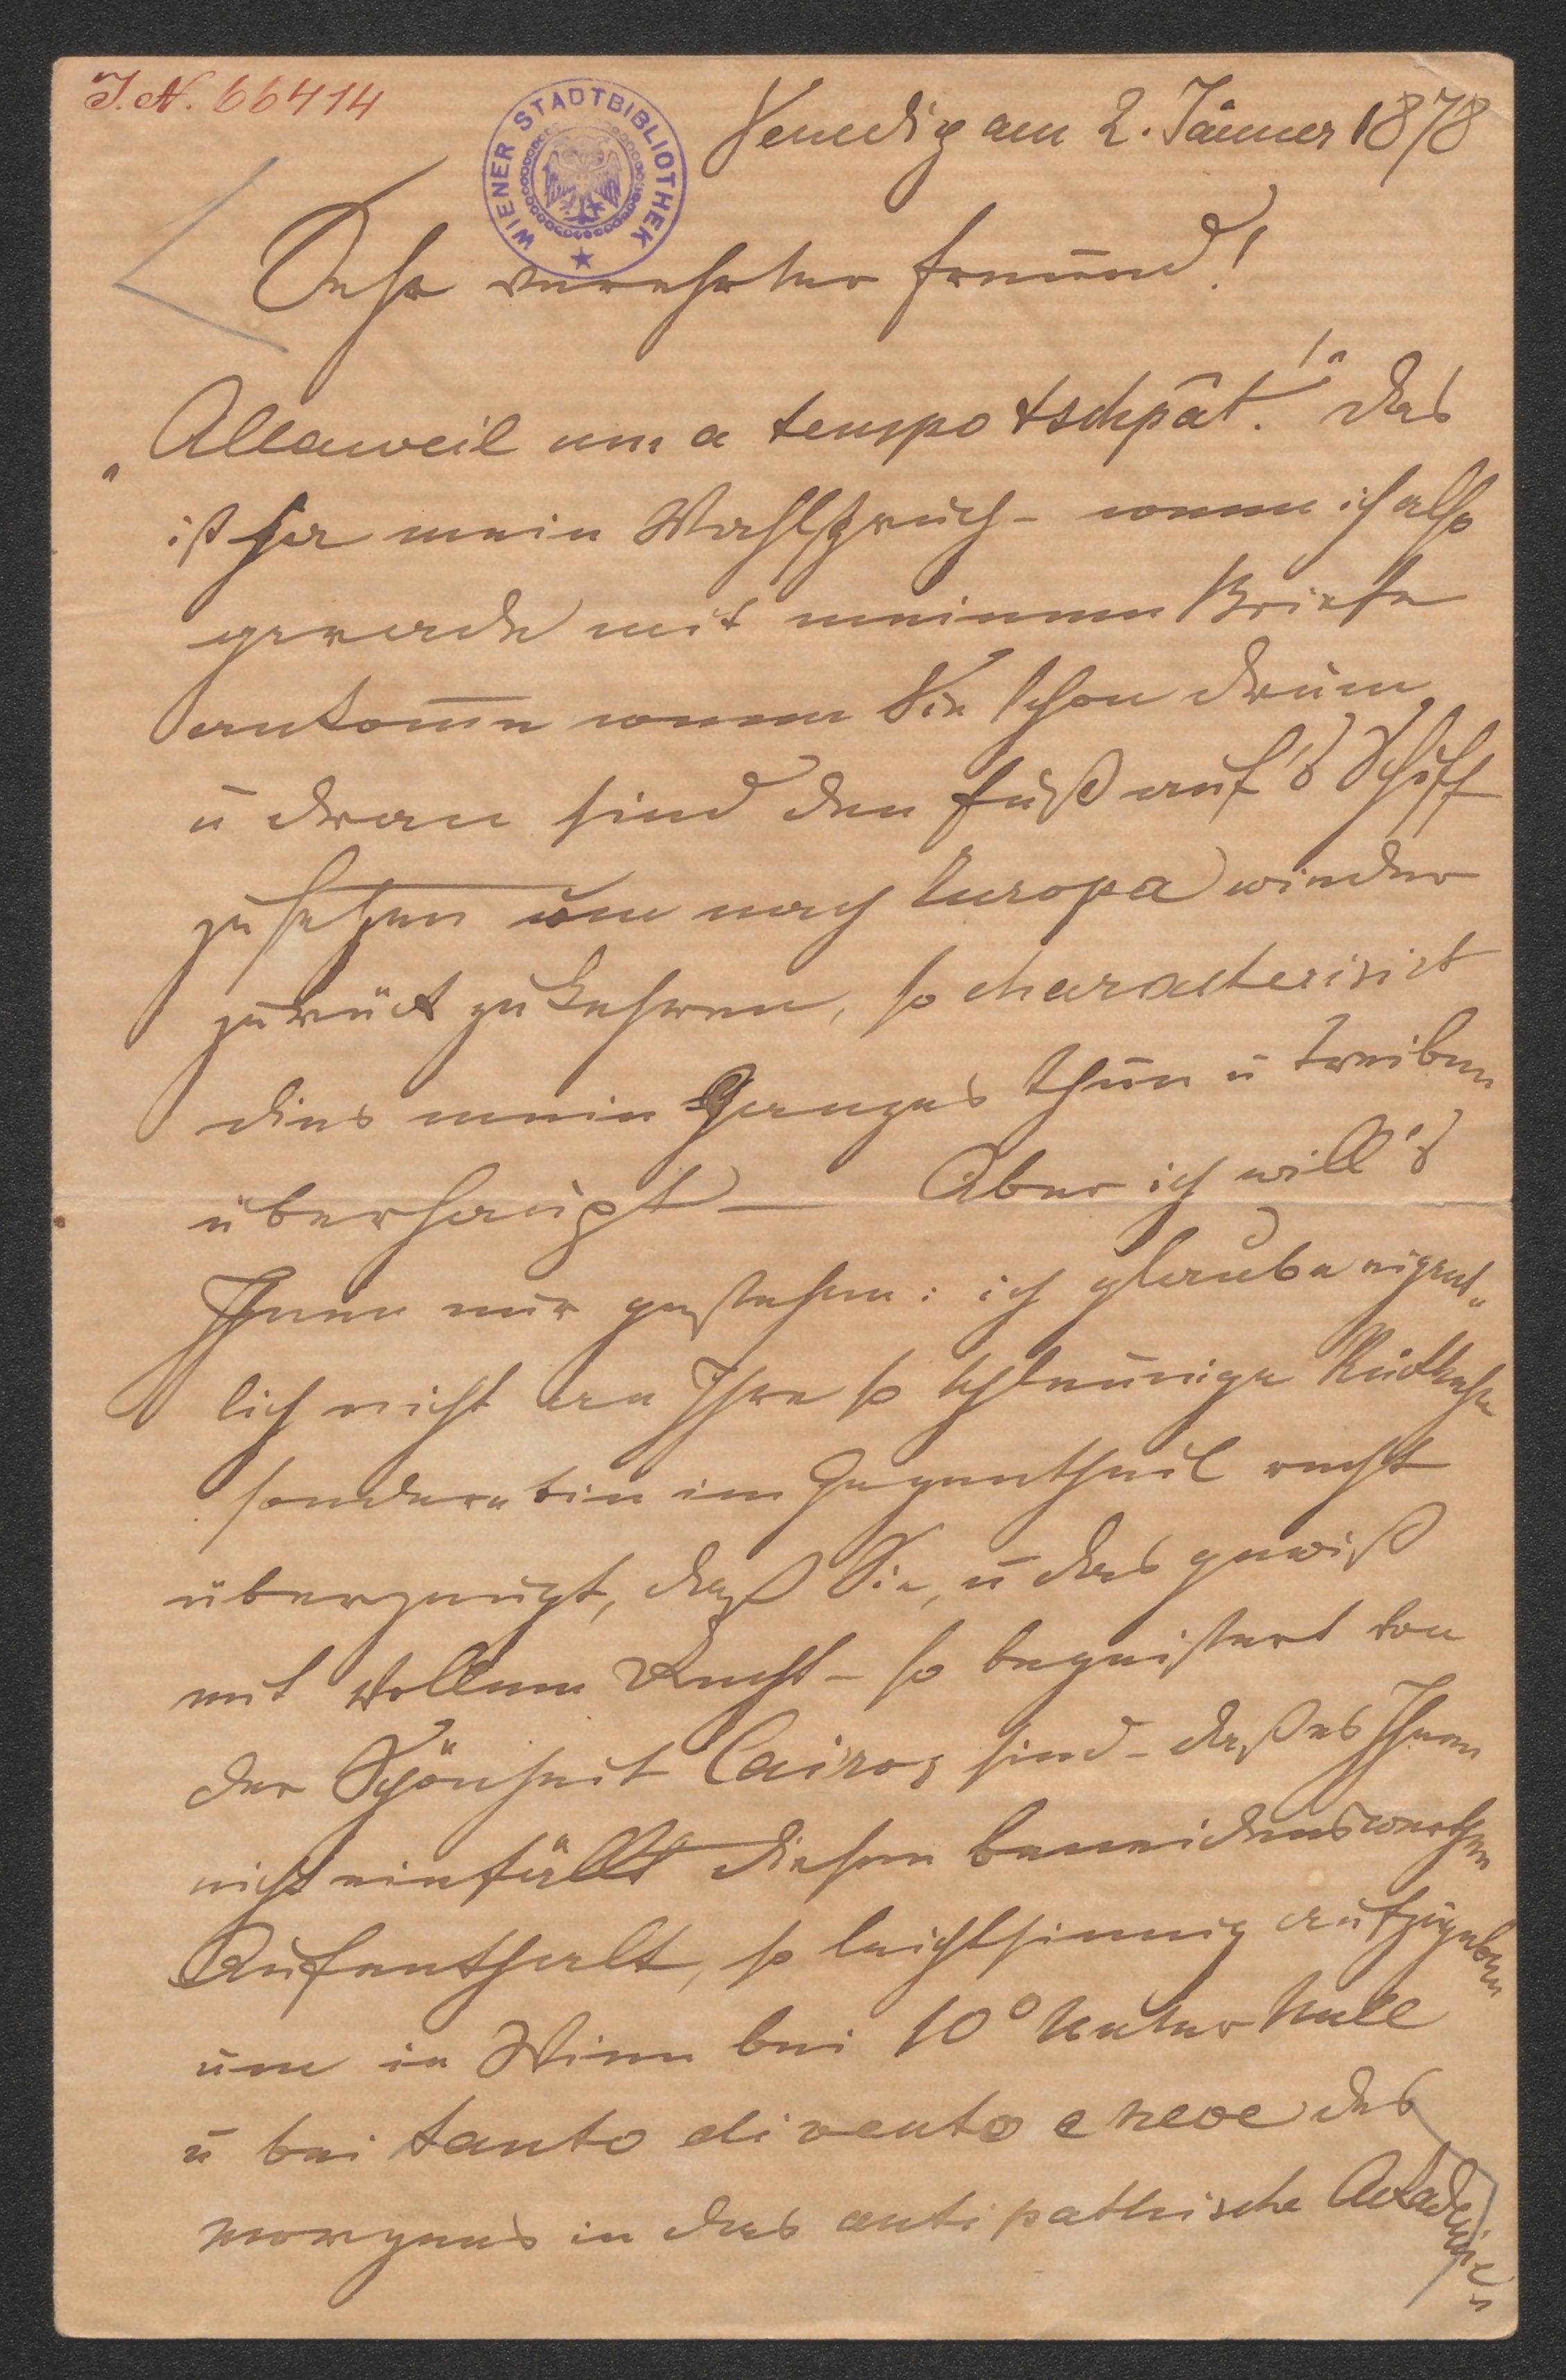 I. N. 66414
WIENER STADTBIBLIOTHEK
Venedig am 2. Jänner 1878
Sehr verehrter Freund!
„Allaweil um a tempo tschpät!“ das
ist ja mein Wahlspruch – wenn ich also
gerade mit meinem Briefe
ankom̅e wenn Sie schon drum
u dran sind den Fuß auf's Schiff
zu setzen um nach Europa wieder
zurück zu kehren, so characterisirt
dies mein Ganzes Thun u Treiben
überhaupt – Aber ich will's
Ihnen nur gestehen: ich glaube eigent„
lich nicht an Ihre so schleunige Rückkehr
sondern bin im Gegentheil recht
überzeugt, daß Sie, u das gewiß
mit vollem Recht – so begeistert von
der Schönheit Cairos sind – daß es Ihnen
nicht einfällt diesen beneidenswerthen
Aufenthalt, so leichtsinnig aufzugeben
um in Wien bei 10° unter Null
u bei tanto di vento e neve des
morgens in das antipathische Akademie„